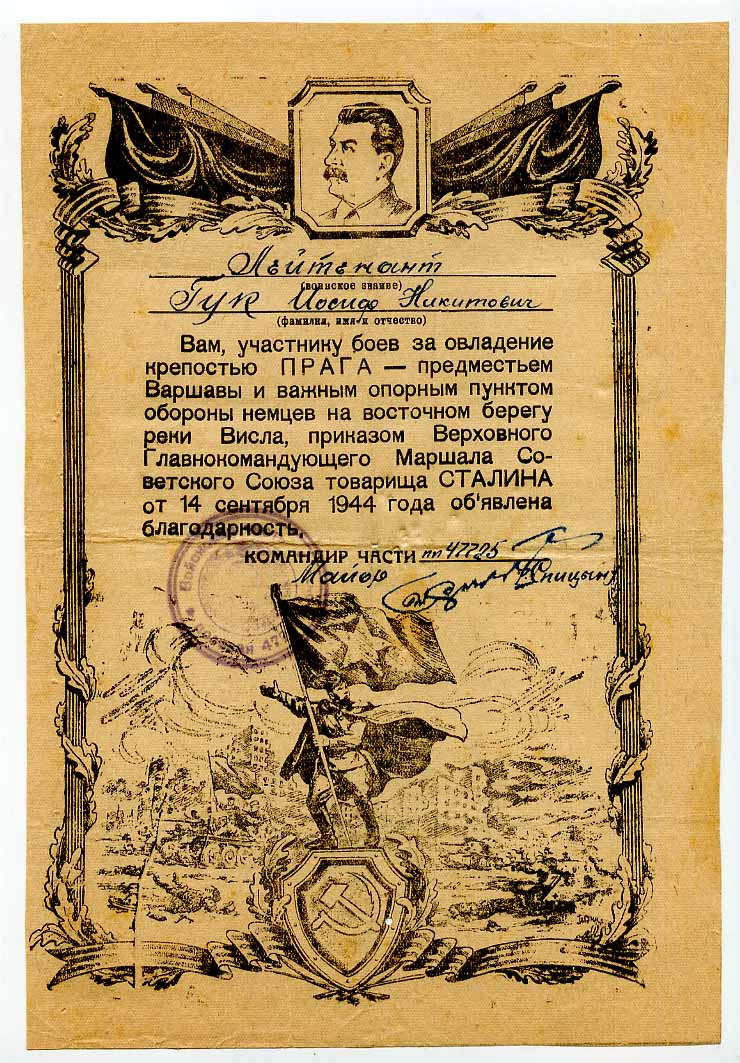 Лейтенант
(воинское звание)
Гук Иосиф Никитович
(фамилия, имя и отчество)
Вам, участнику боев за овладение
крепостью ПРАГА — предместьем
Варшавы и важным опорным пунктом
обороны немцев на восточном берегу
реки Висла, приказом Верховного
Главнокомандующего Маршала Со-
ветского Союза товарища СТАЛИНА
от 14 сентября 1944 года об'явлена
благодарность.
КОМАНДИР ЧАСТИ пп 47725
Майор Спицын